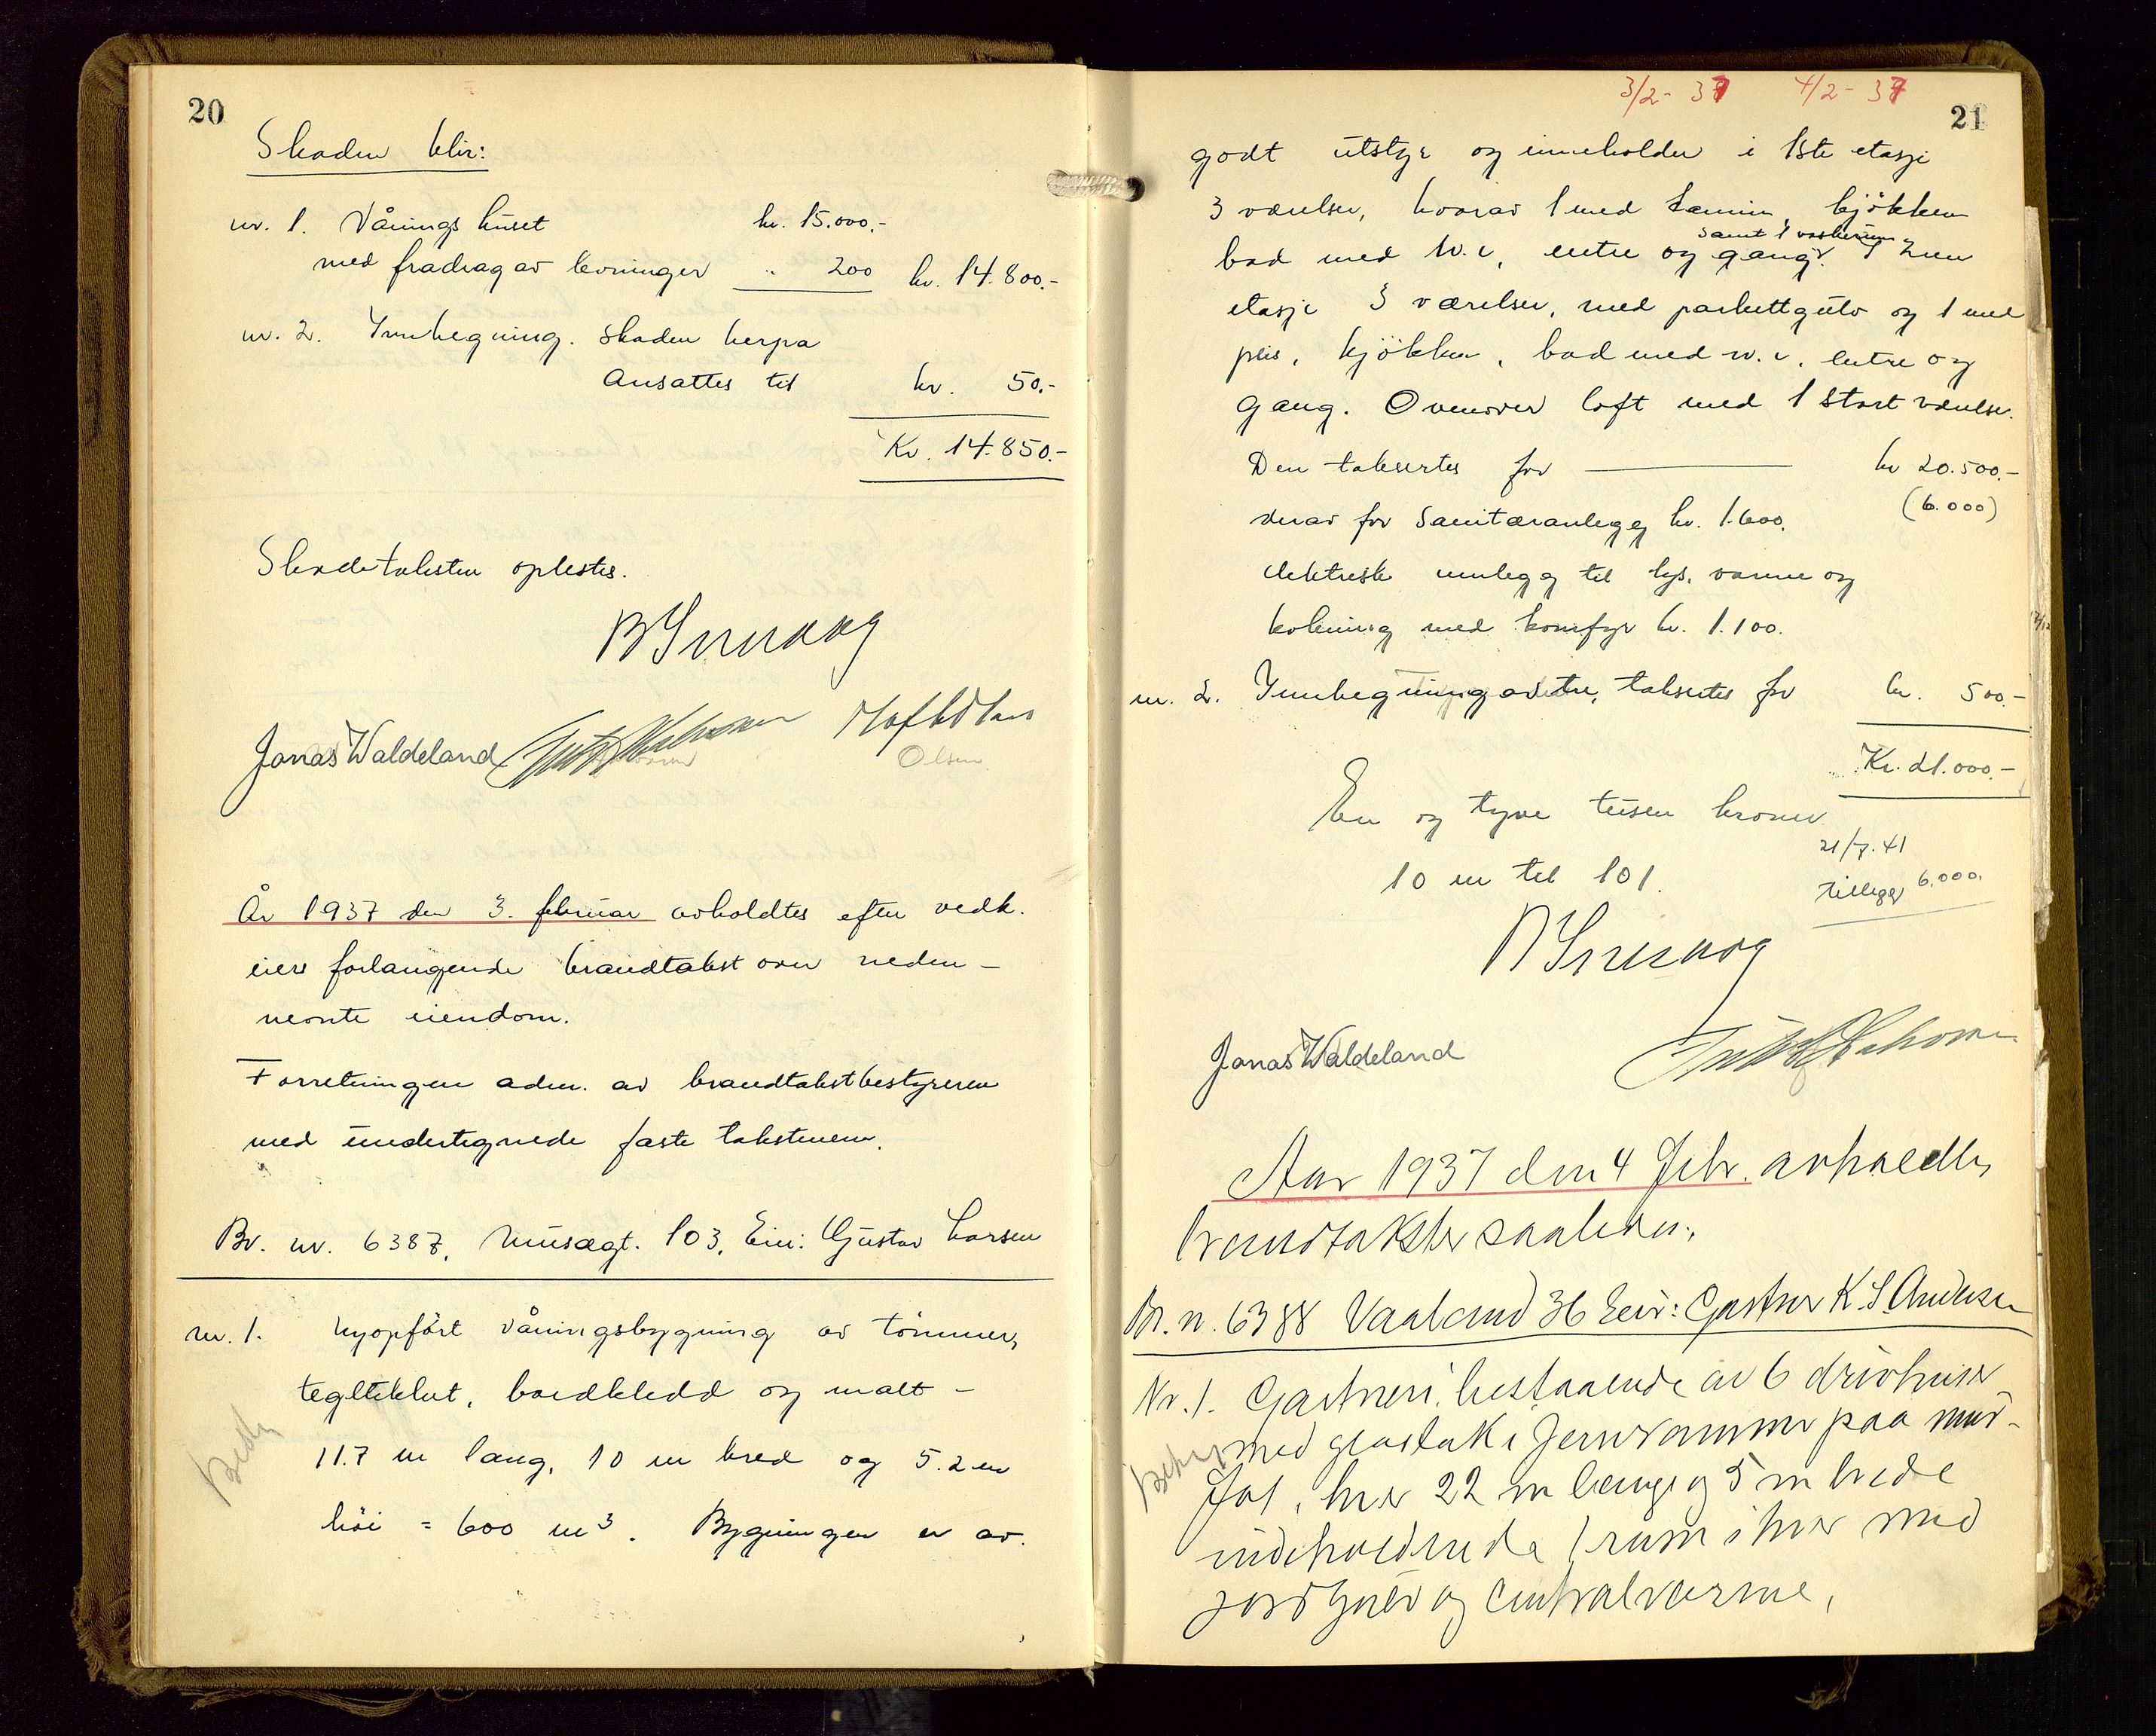 20
Skaden blir:
nr. 1. Våningshuset kr. 15.000.-
med fradrag av levninger " 200 kr. 14.800.-
nr. 2. Innhegning. Skaden herpa
ansattes til kr. 50.-
Kr. 14.850.-
Skadetaksten oplestes.
Jonas Waldeland
Olsen
År 1937 den 3. februar avholdtes efter vedk.
eiers forlangende brandtakst over neden-
nevnte eiendom.
Forretningen adm. av brandtakstbestyreren
med undertegnede faste takstmenn.
Br. nr. 6387, Musægt. 103, Eier: Gustav Larsen
nr. 1. Nyopført våningsbygning av tømmer,
teglteklet, bordkledd og malt -
11.7 m lang, 10 m bred og 5.2 m
høi = 600 m³. Bygningen er av
3/2 - 37 4/2 - 37
21
godt utstyr og inneholder i 1ste etasje
3 værelser, hvorav 1 med kamin, kjøkken
samt 1 vaskerum
bad med w.c, entre og gang. I 2nen
etasje 3 værelser, med parkettgulv og 1 med
peis, kjøkken, bad med w.c. entre og
gang. Ovenover loft med 1 stort værelse.
Den takseres for kr 20.500.-
(6.000)
derav for Sanitæranlegg kr. 1.600.
elektrisk innlegg til lys, varme og
kokning med komfyr kr. 1.100.
nr. 2. Innhegning av tre, takseres for kr. 500.-
Kr. 21.000.-
En og tyve tusen kroner
21/7. 41
10 m til 101.
tillegg 6.000.
Jonas Waldeland
Aar 1937 den 4 Febr. avholdtes
brandtakster saaledes:
Br. n. 6388 Vaaland 36 Eier: Gartner K. S. Andersen
Nr. 1. Gartneri bestaaende av 6 drivhuser
med glastak i Jernrammer paa mur-
fot, hver 22 m lange og 5 m brede
indeholdende 1 rum i hver med
jordgulv og centralvarme,